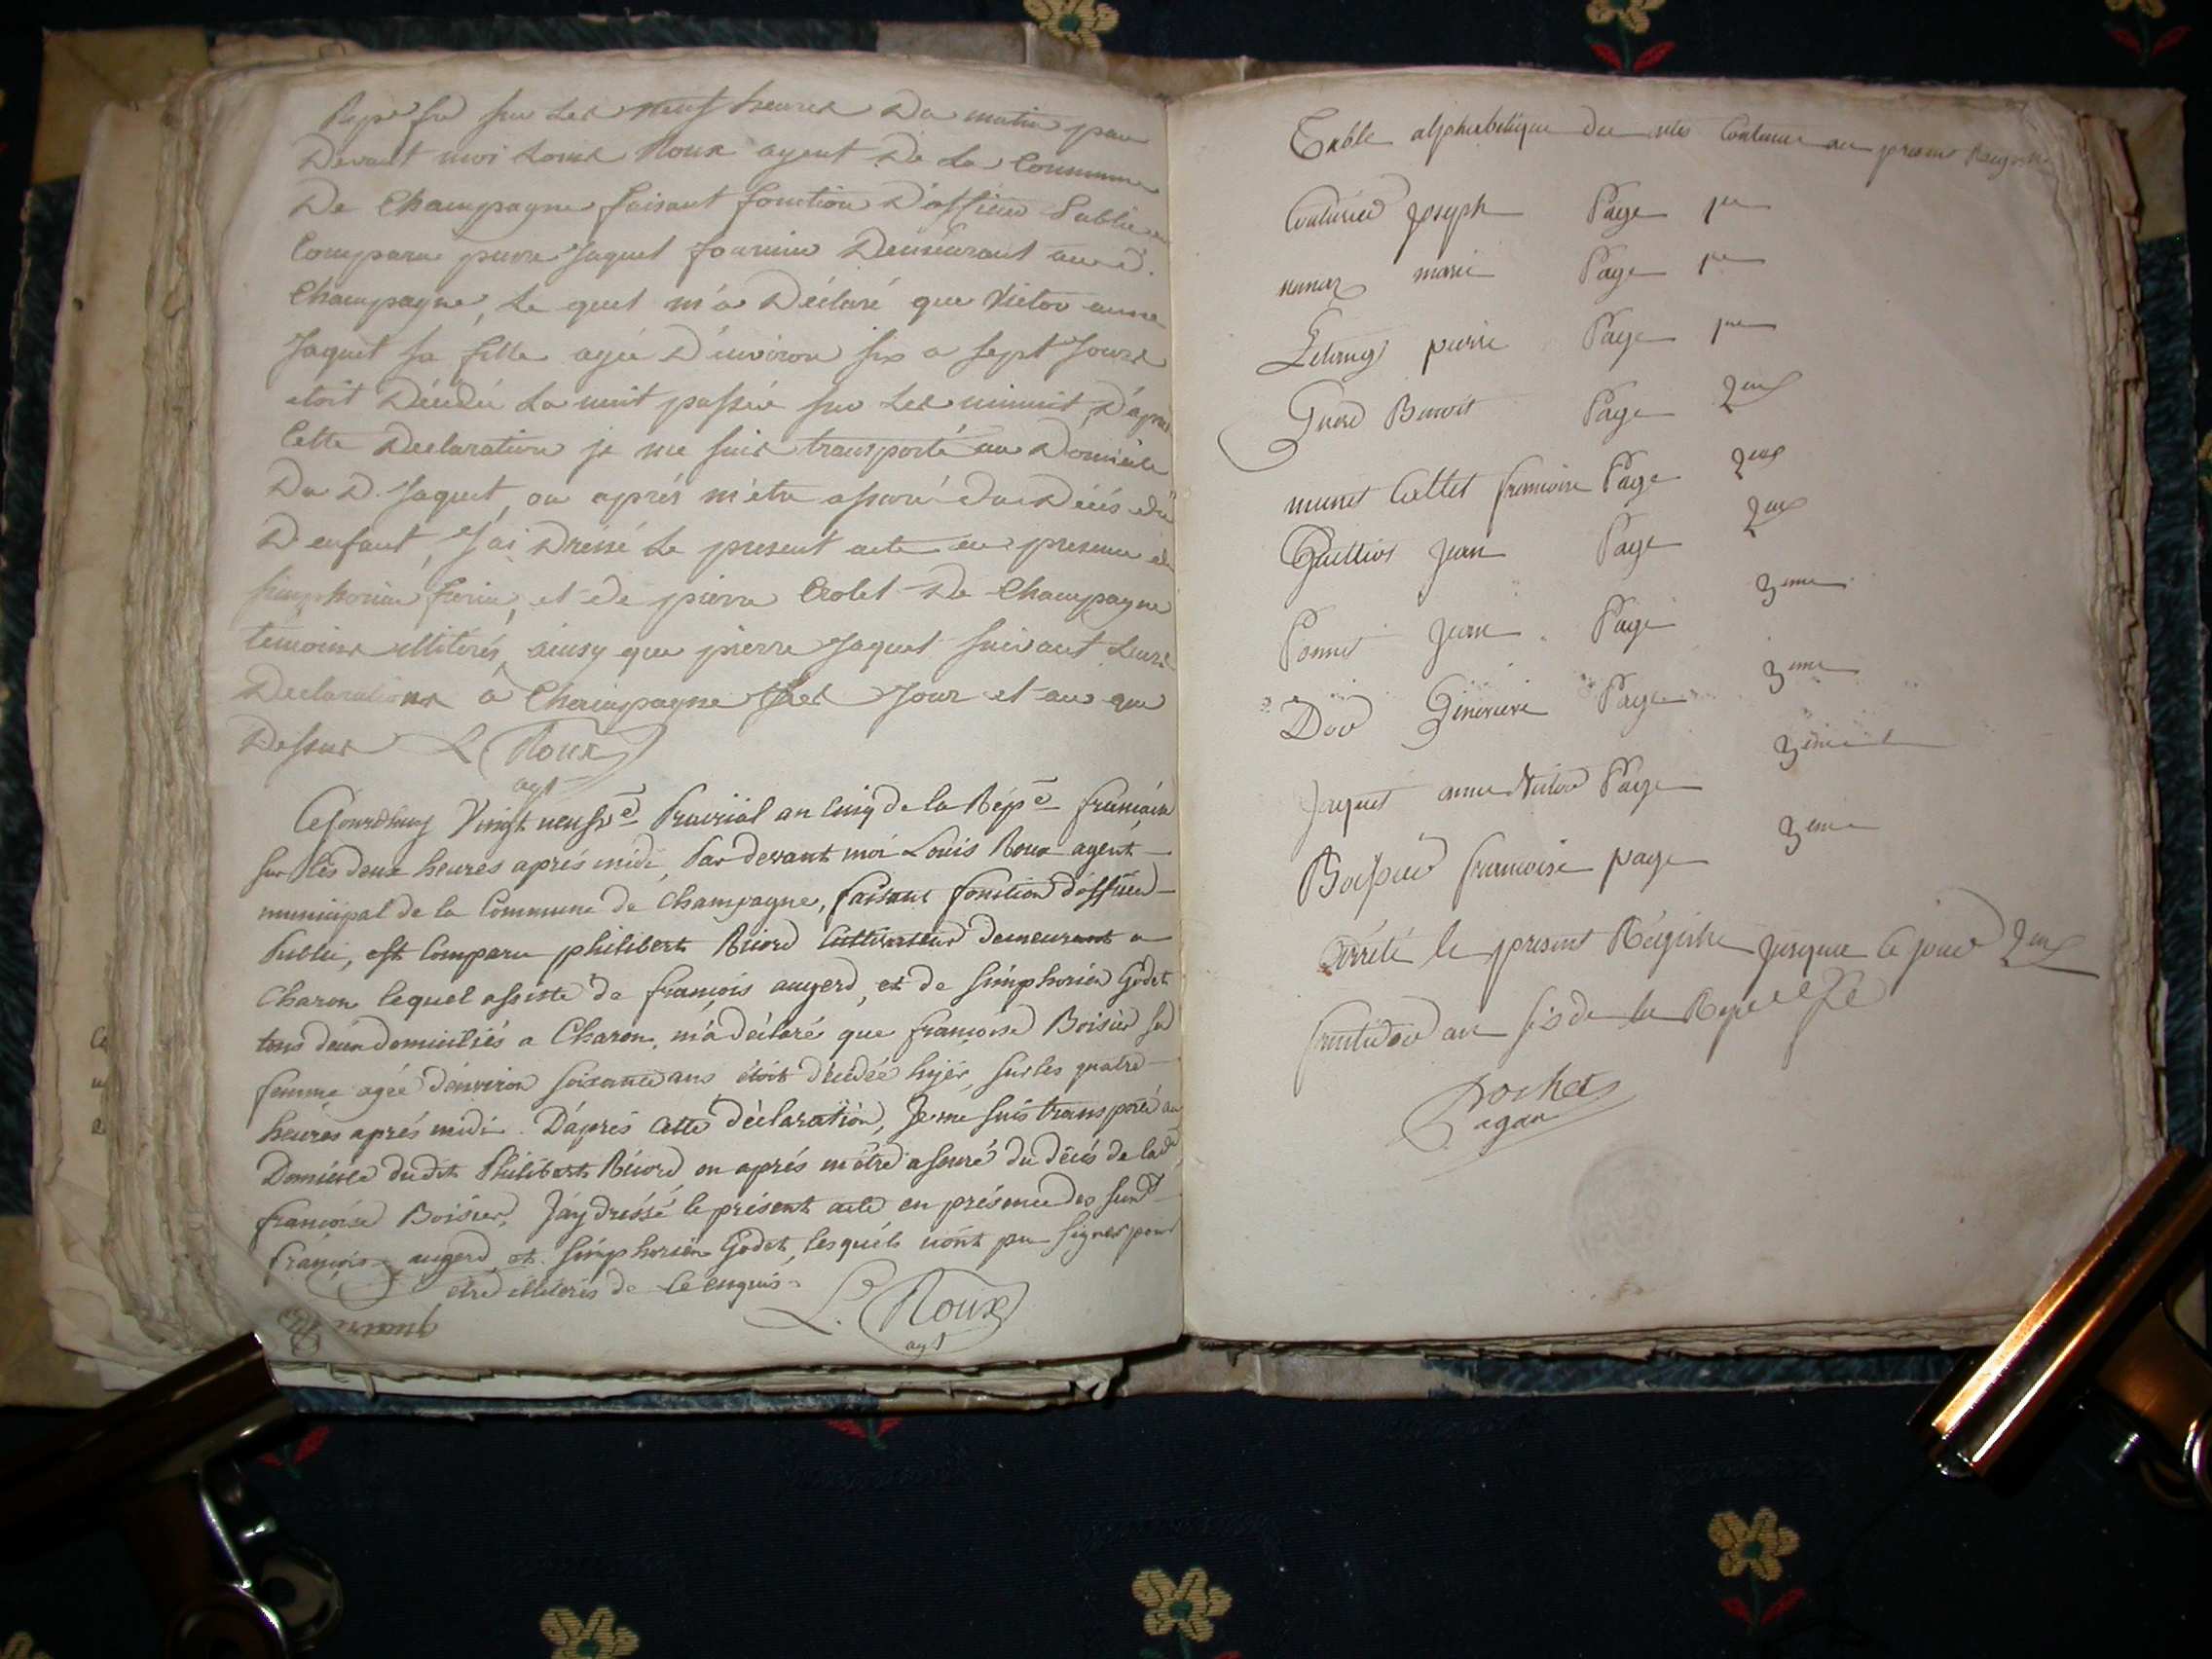 Repe fse sur les neuf heures du matin par
Devant moi Louis Roux agent De la Commune
De Champagne faisant fonction D'officier Public
Comparu pierre Jaquet fournier Demeurant au d.
Champagne, Le quel m'a Déclaré que Victor anne
Jaquet sa fille agée D'environ six a sept Jours
etoit Décédée la nuit passée sur Les minuit, D'après
Cette Declaration je me suis transporté au Domicile
Du D. Jaquet, ou aprés m'etre assuré du Décés du
D enfant, J'ai Dressé Le present acte en presence de
simphorien et de pierre Crolet De Champagne
temoins illiterés, ainsy que pierre Jaquet suivant Leurs
Declarations a Champagne Les Jour et an que
Dessus L Roux
agt
Cejourdhuy Vingt neufve Prairial an cinq de la Répe francaise
sur les deux heures aprés midi, Par devant moi Louis Roux agent
municipal de la Commune de Champagne, faisant fonction d'officier
Public, est Comparu philibert Ricord Cultivateur demeurant a
Charon lequel assisté de françois augerd, et de Simphorien Godet
tous deux domiciliés a Charon, m'a déclaré que francoise Boisier sa
femme agée d'environ soixante ans étoit décédée hyér, sur les quatre
heures aprés midi. D'aprés cette déclaration, Je me suis transporté au
Domicile du dit Philibert Ricord ou aprés m'être assuré du décés de lad
francoise Boisier, J'ay dressé le présent acte en présence des susd
françois augerd et Simphorien Godet, lesquels n'ont pu signer pour
etre illiterés de ce enquis
L. Roux
agt
Table alphabetique des actes Contenu au present Registre
Couturier Joseph Page 1er
marie Page 1er
pierre Page 1er
Benoit Page 2me
francoise Page 2me
Guilliot Jean Page 2me
Ponnet Jean Page 3eme
Genevieve Page 3eme
Jaquet anne Victor Page 3eme
Boisier francoise page 3eme
Arrété le present Régistre jusque ce jour 2me
fructidor an six de la Repe
Rochet
agan